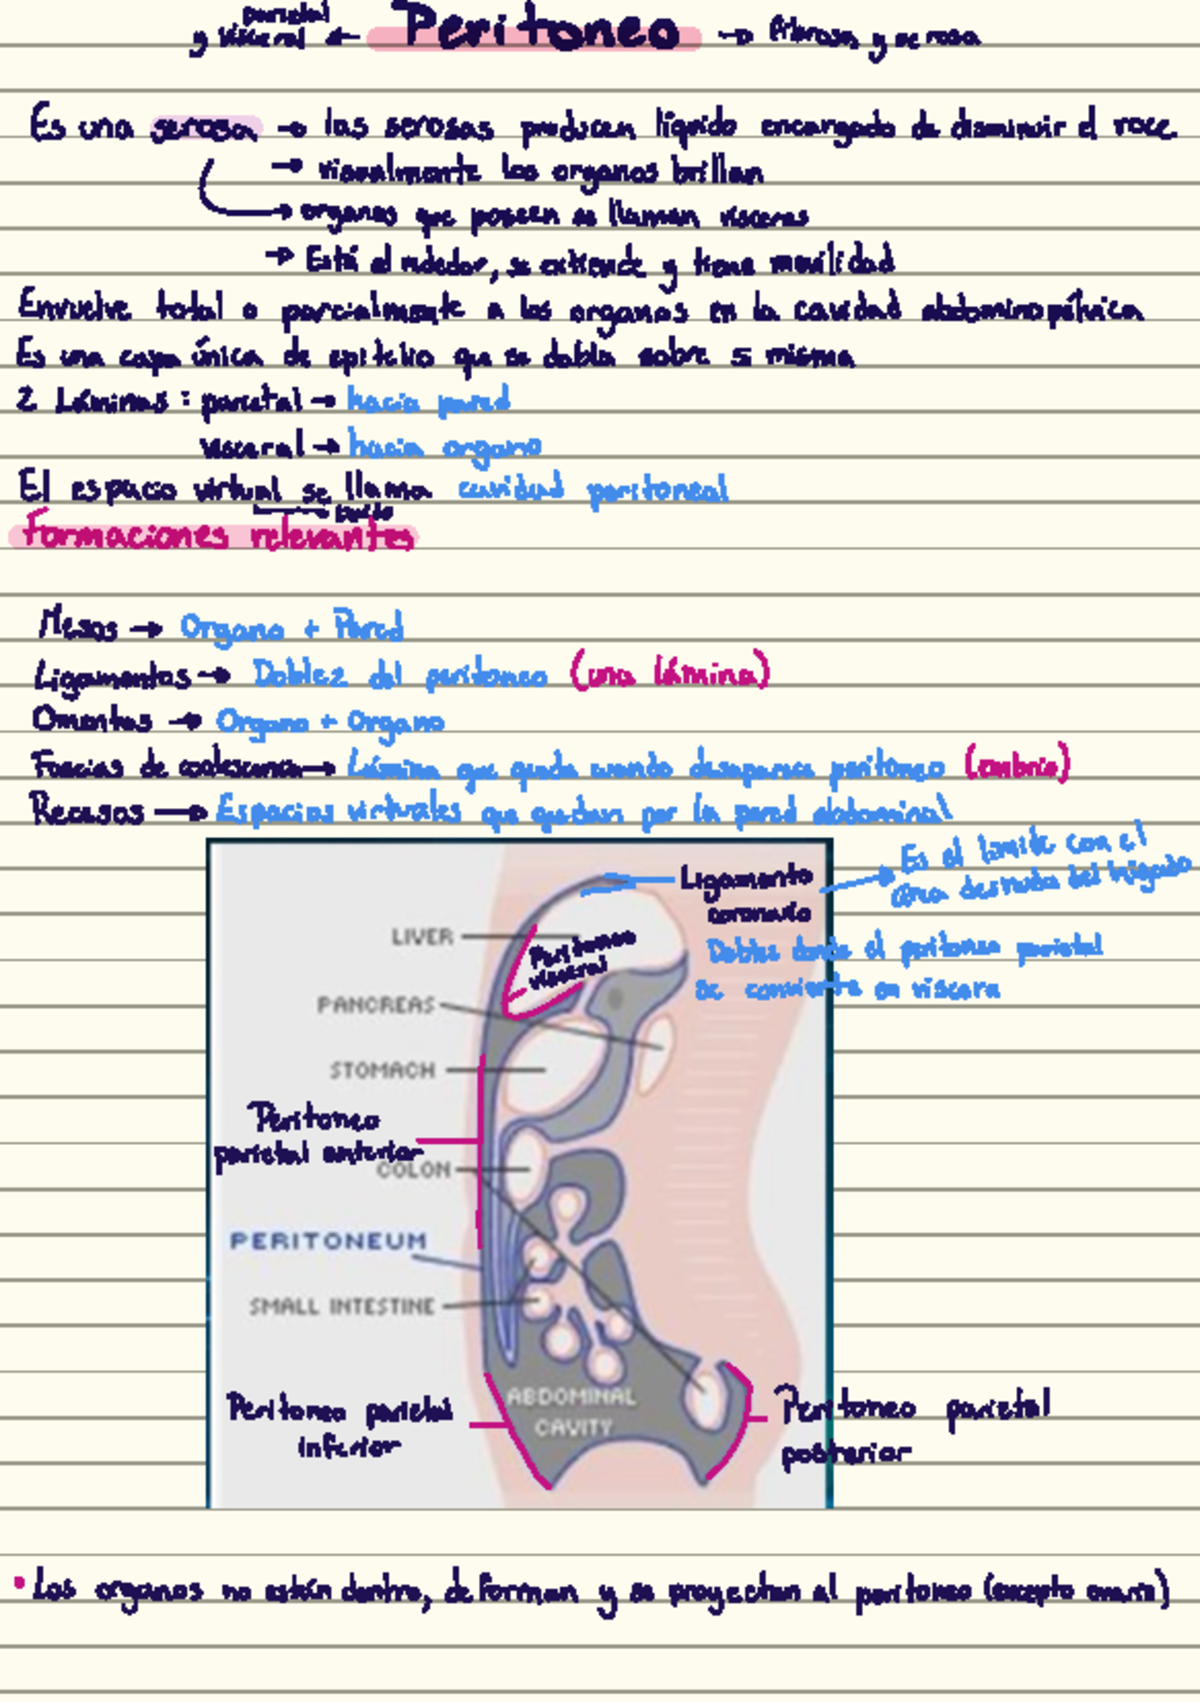 parietal
y visceral ← Peritoneo → fibrosa y serosa
Es una serosa → las serosas producen líquido encargado de disminuir el roce
→ visualmente los organos brillan
→ organos que poseen se llaman vísceras
→ Está al rededor, se extiende y tiene movilidad
Envuelve total o parcialmente a los organos en la cavidad abdominopélvica
Es una capa única de epitelio que se dobla sobre si misma
2 Láminas: parietal → hacia pared
visceral → hacia organo
El espacio virtual se llama cavidad peritoneal
Formaciones relevantes
Mesos → Organo + Pared
Ligamentos → Doblez del peritoneo (una lámina)
Omentos → Organo + Organo
Fascias de coalescencia → Lámina que queda cuando desaparece peritoneo (embrio)
Recesos → Espacios virtuales que quedan por la pared abdominal
Ligamento
coronario
→ Es el limite con el
área desnuda del hígado
Doblez donde el peritoneo parietal
se convierte en víscera
LIVER
Peritoneo
visceral
PANCREAS
STOMACH
Peritoneo
parietal anterior
COLON
PERITONEUM
SMALL INTESTINE
ABDOMINAL
CAVITY
Peritoneo parietal
inferior
Peritoneo parietal
posterior
• Los organos no están dentro, deforman y se proyectan al peritoneo (excepto ovario)